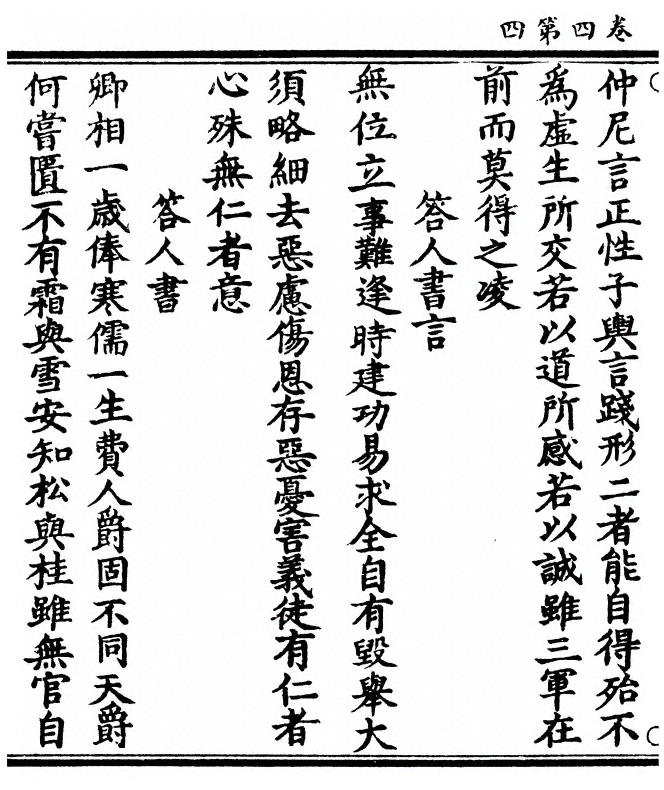 卷四第四
仲尼言正性子輿言踐形二者能自得殆不
為虛生所交若以道所感若以誠雖三軍在
前而莫得之凌
答人書言
無位立事難逢時建功易求全自有毀舉大
須略細去惡慮傷恩存惡憂害義徒有仁者
心殊無仁者意
答人書
卿相一歲俸寒儒一生費人爵固不同天爵
何嘗匱不有霜與雪安知松與桂雖無官自